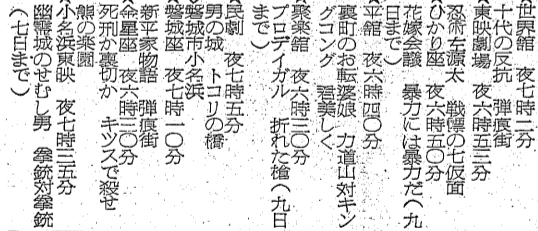 世界館　夜七時一分
十代の反抗　弾痕街
★東映劇場　夜六時五三分
忍術左源太　戦慄の七仮面
★ひかり座　夜六時五〇分
花嫁会議　暴力には暴力だ（九
日まで）
★平館　夜六時四〇分
裏町のお転婆娘　力道山対キン
グコング　君美しく
★聚楽館　夜六時三〇分
プロデイガル　折れた槍（九日
まで）
★民劇　夜七時五分
男の城　トコリの橋
◆磐城市小名浜
★磐城座　夜七時一〇分
新平家物語　弾痕街
★金星座　夜六時二〇分
死刑か裏切か　キツスで殺せ
熊の楽園
★小名浜東映　夜七時三五分
幽霊城のせむし男　拳銃対拳銃
（七日まで）